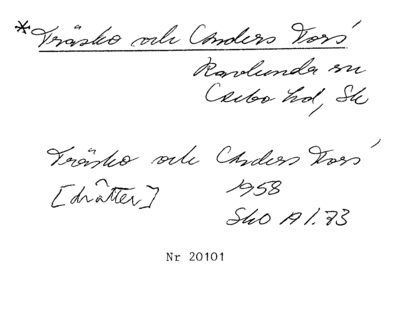 *Träsko och Anders Tors'
Ravlunda sn
Albo hd, Sk
Träsko och Anders Tors'
[drâtter] 1958
SkO A1.73
Nr 20101